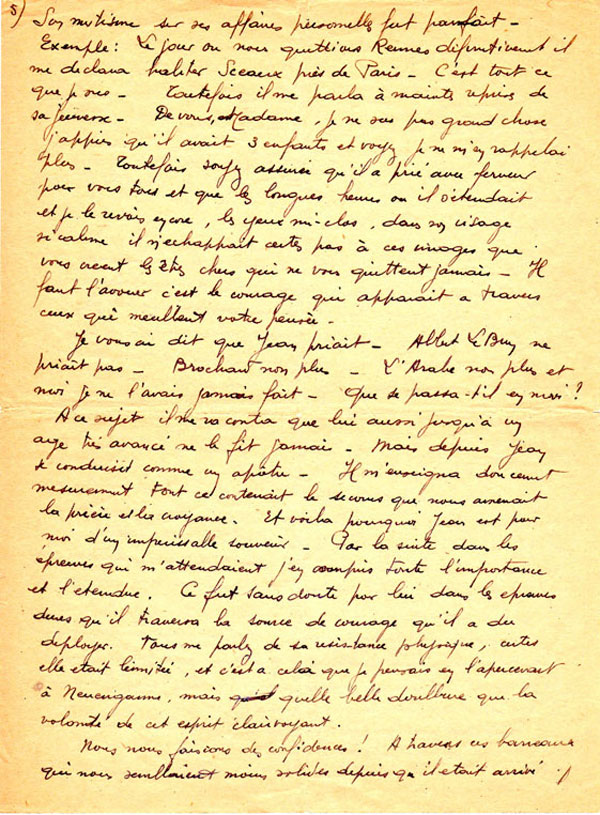 5)
Son mutisme sur ses affaires personelles fut parfait -
Exemple : Le jour ou nous quittions Rennes définitivement il
me declara habiter Sceaux près de Paris - C'est tout ce
que je sus - Toutefois il me parla à maintes reprises de
sa jeunesse - De vous, Madame, je ne sus pas grand chose
j'appris qu'il avait 3 enfants et voyez je ne m'en rappelai
plus - Toutefois soyez assurée qu'il a prié avec ferveur
pour vous tous et que les longues heures ou il s'étendait
et je le revois encore, les yeux mi-clos, dans son visage
si calme il n'echappait certes pas à ces images que
vous creent les êtres chers qui ne vous quittent jamais - Il
faut l'avouer c'est le courage qui apparait a travers
ceux qui meublent votre pensée -
Je vous ai dit que Jean priait - Albert Le Buy ne
priait pas - Brochard non plus - L'Arabe non plus et
moi je ne l'avais jamais fait - Que se passa-t'il en moi ?
A ce sujet il me raconta que lui aussi jusqu'à un
age très avancé ne le fit jamais - Mais depuis Jean
se conduisit comme un apôtre - Il m'enseigna doucement
tout ce contenait le secours que nous amenait
la prière et la croyance. Et voila pourquoi Jean est pour
moi d'un impérissable souvenir - Par la suite dans les
épreuves qui m'attendaient j'en compris toute l'importance
et l'etendue. Ce fut sans doute pour lui dans les epreuves
dures qu'il traversa la source de courage qu'il a du
deployer. Tous me parlez de sa resistance physique, certes
elle etait limitée, et c'est a cela que je pensais en l'apercevant
à Neuengamme, mais quelle belle doublure que la
volonté de cet esprit clairvoyant.
Nous nous faisions des confidences ! A travers ces barreaux
qui nous semblaient moins solides depuis qu'il etait arrivé ./